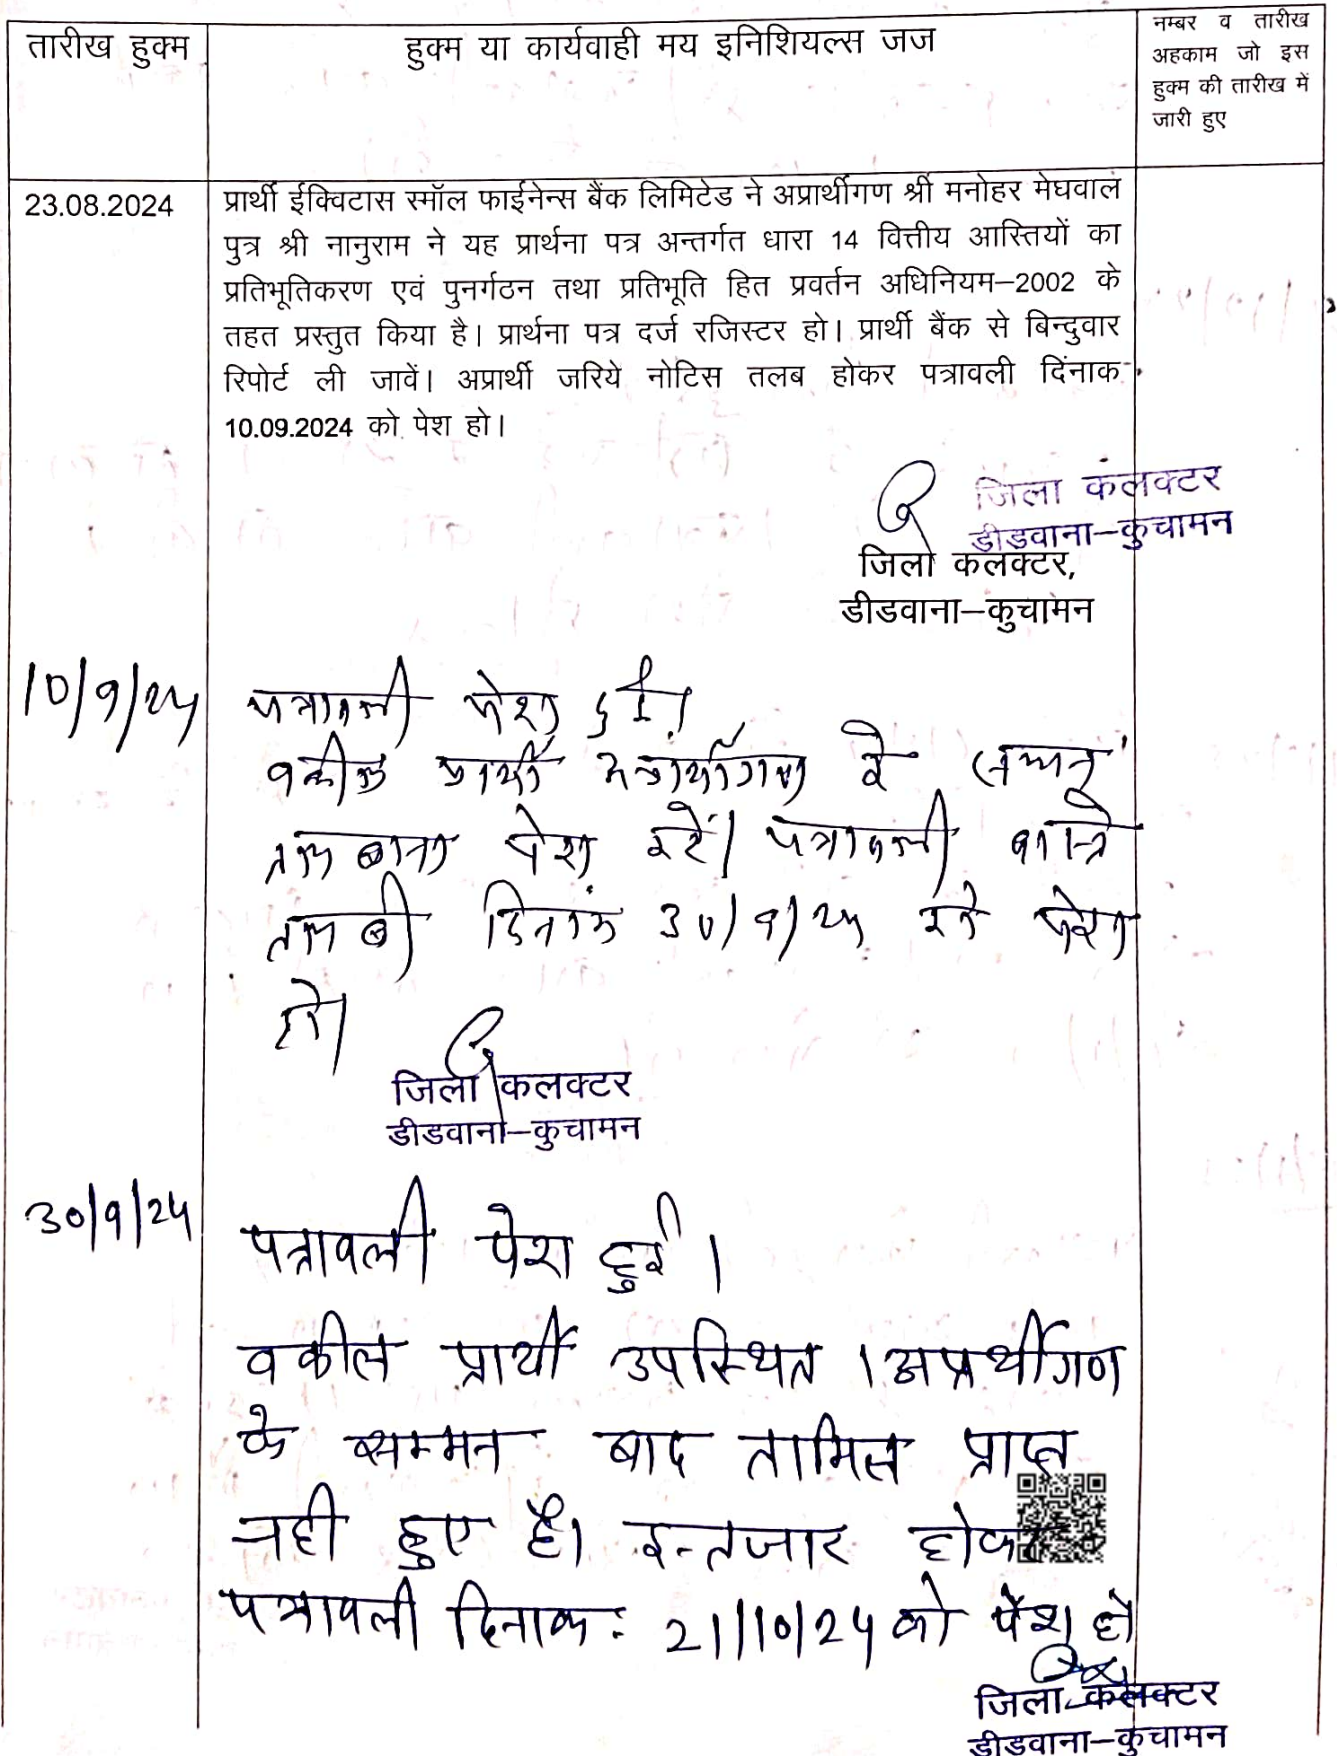 तारीख हुक्म
हुक्म या कार्यवाही मय इनिशियल्स जज
नम्बर व तारीख
अहकाम जो इस
हुक्म की तारीख में
जारी हुए
23.08.2024
प्रार्थी ईक्विटास स्मॉल फाईनेन्स बैंक लिमिटेड ने अप्रार्थीगण श्री मनोहर मेघवाल
पुत्र श्री नानुराम ने यह प्रार्थना पत्र अन्तर्गत धारा 14 वित्तीय आस्तियों का
प्रतिभूतिकरण एवं पुनर्गठन तथा प्रतिभूति हित प्रवर्तन अधिनियम–2002 के
तहत प्रस्तुत किया है। प्रार्थना पत्र दर्ज रजिस्टर हो। प्रार्थी बैंक से बिन्दुवार
रिपोर्ट ली जावें। अप्रार्थी जरिये नोटिस तलब होकर पत्रावली दिंनाक
10.09.2024 को पेश हो।
जिला कलक्टर
डीडवाना–कुचामन
जिला कलक्टर,
डीडवाना–कुचामन
10/9/24
पत्रावली पेश हुई।
वकील प्रार्थी अप्रार्थीगण के सम्मन
तलबाना पेश करें। पत्रावली वास्ते
तलबी दिनांक 30/9/24 को पेश
हो।
जिला कलक्टर
डीडवाना–कुचामन
30/9/24
पत्रावली पेश हुई।
वकील प्रार्थी उपस्थित। अप्रर्थीगण
के सम्मन बाद तामिल प्राप्त
नही हुए है। इन्तजार होकर
पत्रावली दिनाक: 21/10/24 को पेश हो
जिला कलक्टर
डीडवाना–कुचामन